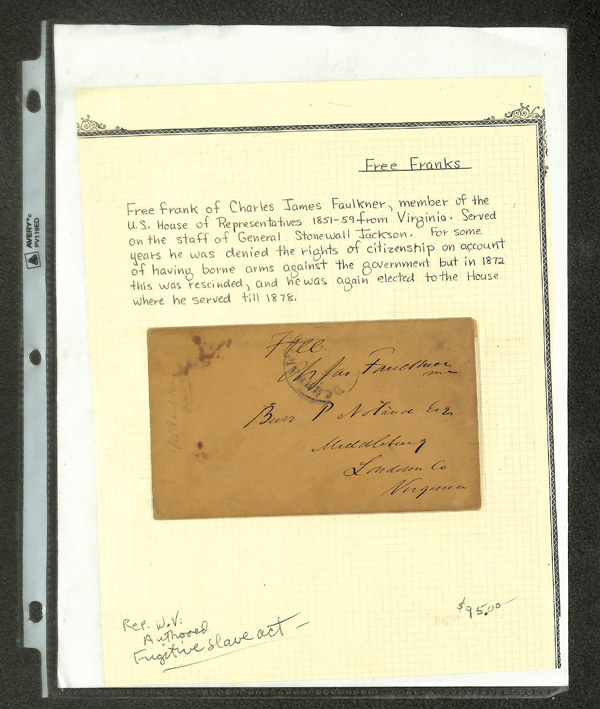 Free Franks
Free frank of Charles James Faulkner, member of the
U.S. House of Representatives 1851-59 from Virginia. Served
on the staff of General Stonewall Jackson. For some
years he was denied the rights of citizenship on account
of having borne arms against the government but in 1872
this was rescinded, and he was again elected to the House
where he served till 1878.
AVERY®
Free
Ch Jas Faulkner
P Noland Esq
Middleburg
Loudoun Co
Virginia
$95.00
Rep. W.V.
Authored
Fugitive slave act —